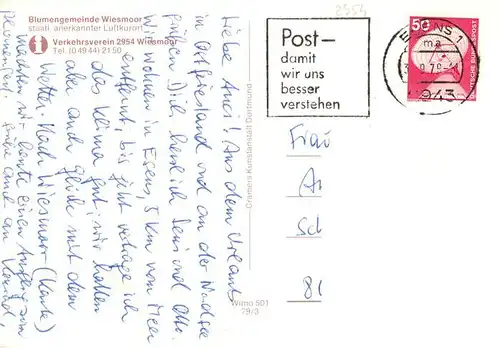 Blumengemeinde Wiesmoor
staatl. anerkannter Luftkurort
Verkehrsverein 2954 Wiesmoor
Tel. (0 49 44) 21 50
Liebe Anci! Aus dem Urlaub
in Ostfriesland und an der Nordsee
grüßen Dich herzlich Leni und Otto.
Wir wohnen in Esens, 5 km vom Meer
entfernt, bis jetzt vertrage ich
das Klima gut, wir hatten
aber auch gleich mit dem
Wetter. Nach Wiesmoor (Karte)
machten wir heute einen Ausflug zum
Grüße auch an
Cramers Kunstanstalt Dortmund
Wimo 501
79/3
2954
Post–
damit
wir uns
besser
verstehen
ESENS 1
ma
943
50
DEUTSCHE BUNDESPOST
Frau
Ar
Sch
8(